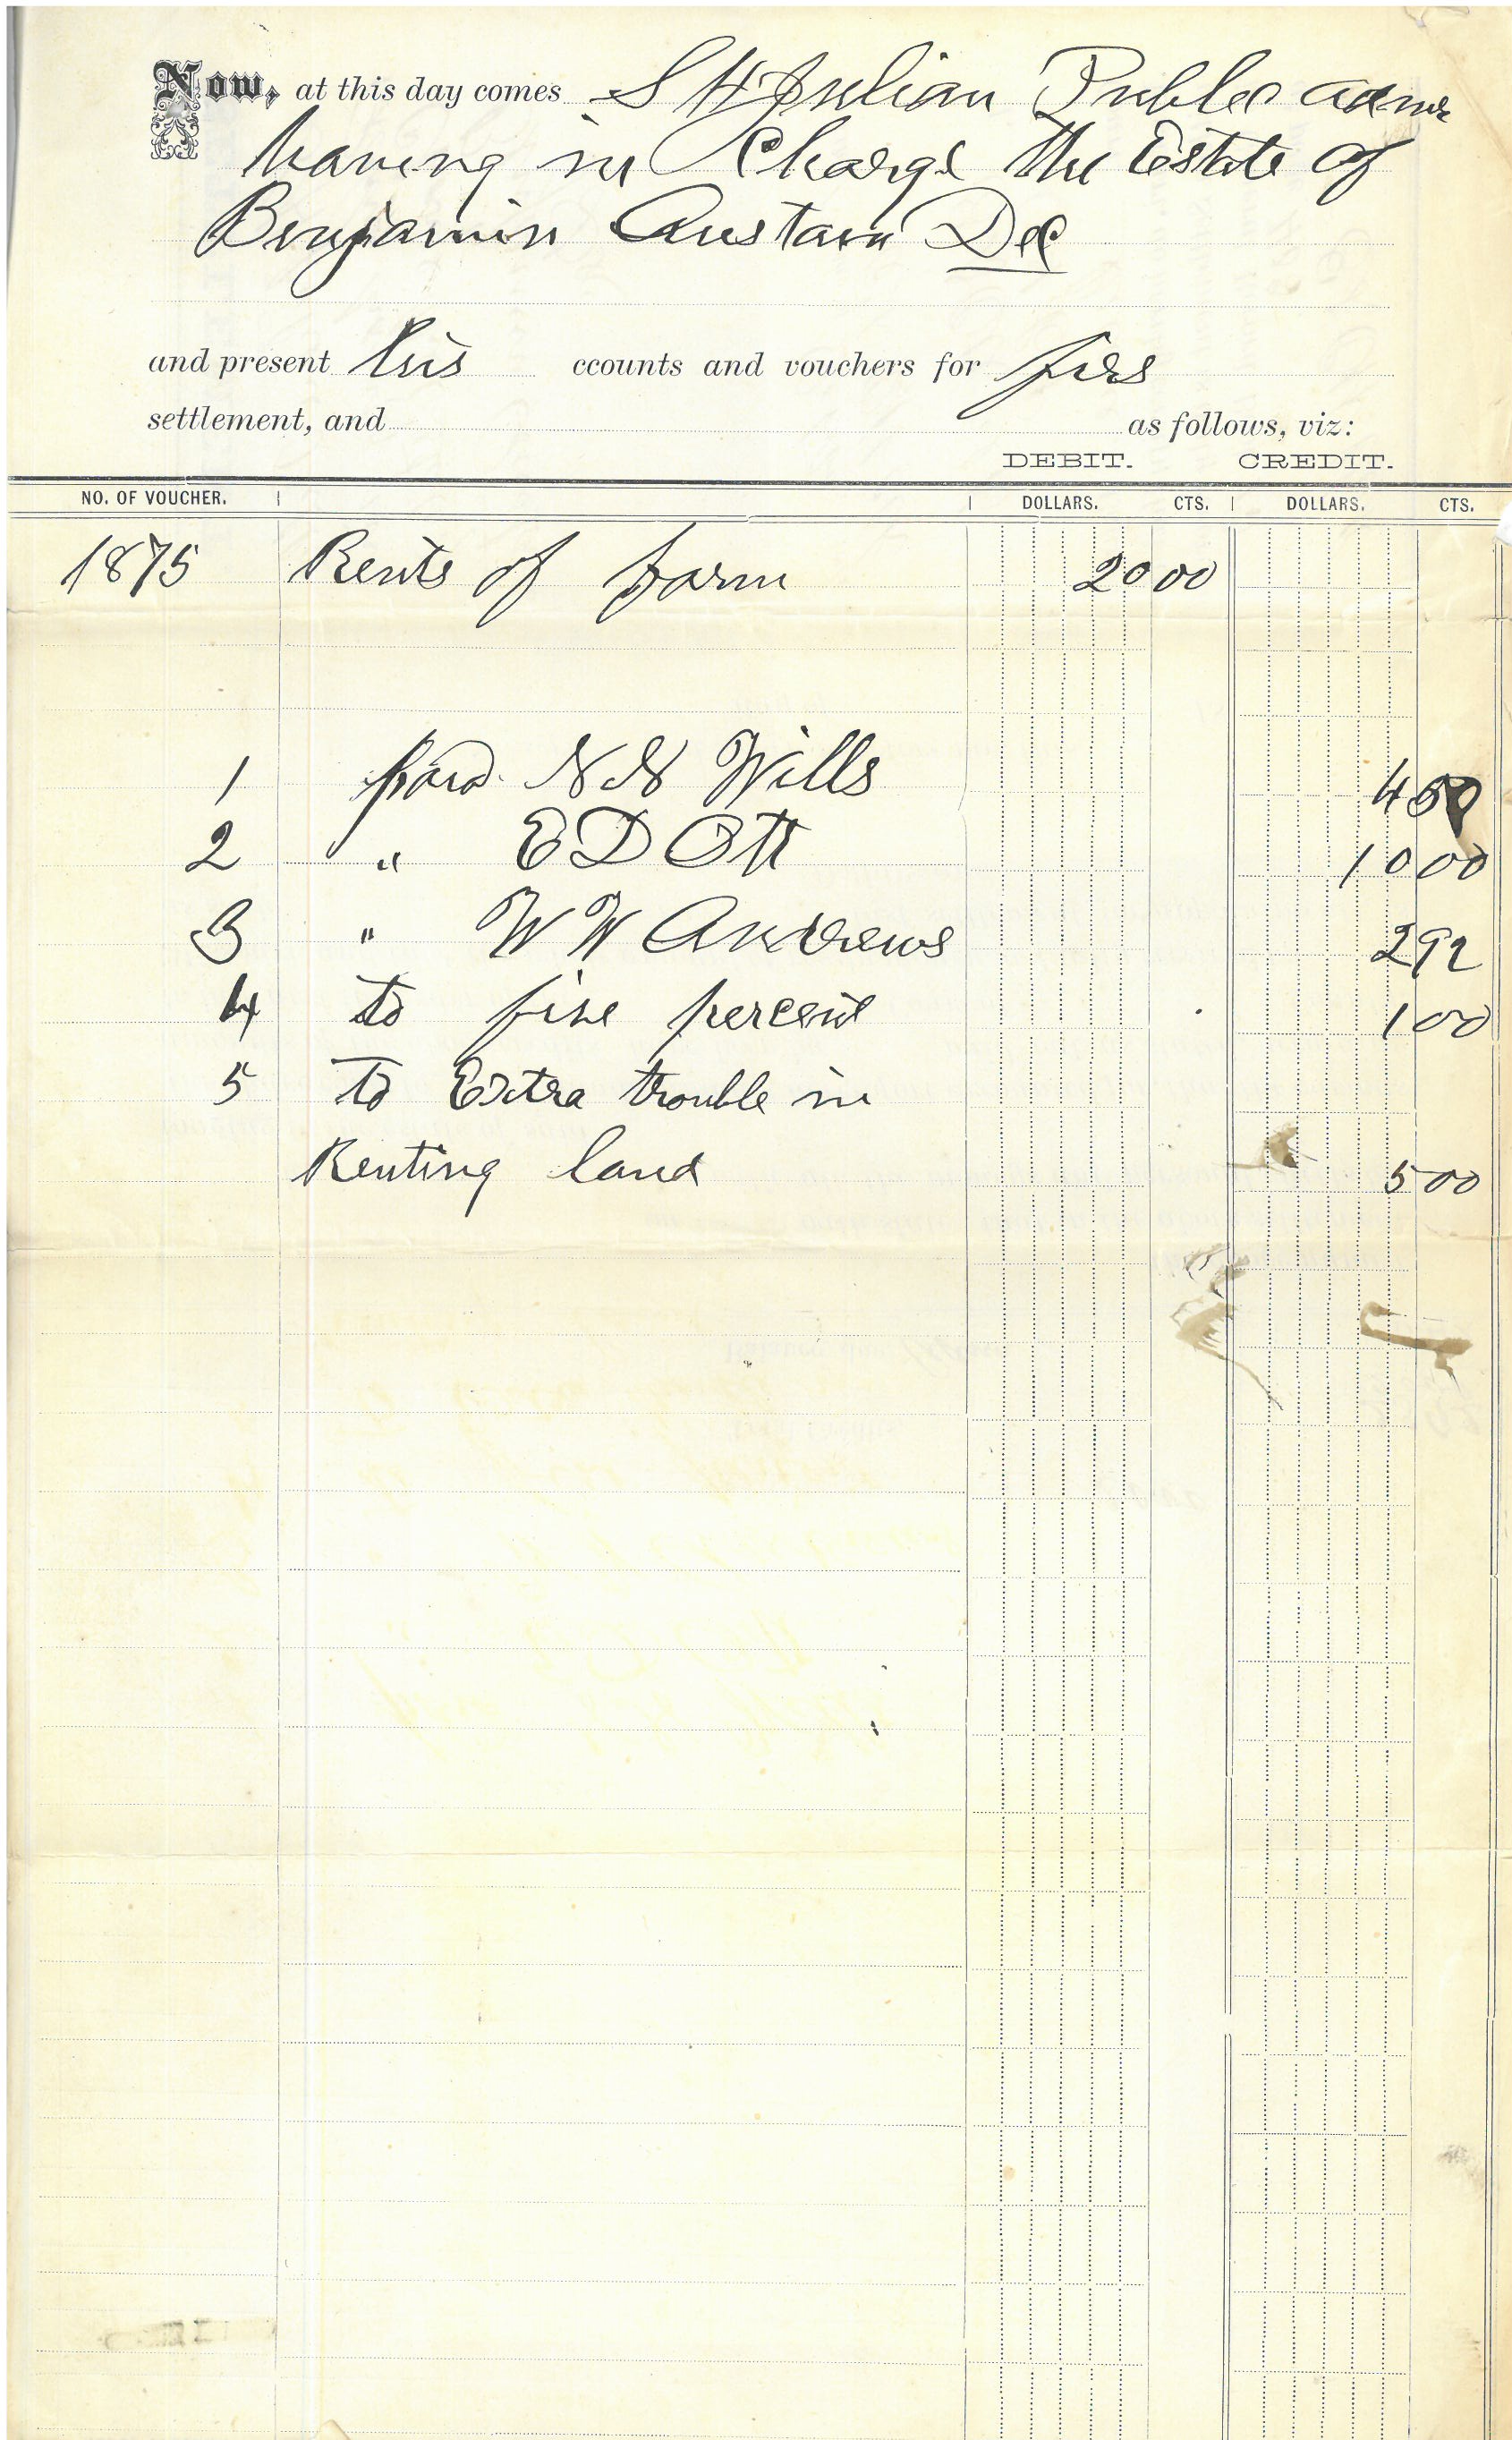 Now, at this day comes S H Julian Public admr
having in Charge the Estate of
Benjamin Austain Dec
and present his ccounts and vouchers for firs
settlement, and as follows, viz:
DEBIT. CREDIT.
NO. OF VOUCHER. DOLLARS. CTS. DOLLARS. CTS.
1875 Rents of farm 20 00
1 paid N N Wills 4 50
2 " E D Ott 10 00
3 " W W Andrews 2 92
4 to five percent 1 00
5 To Extra trouble in
Renting land 5 00